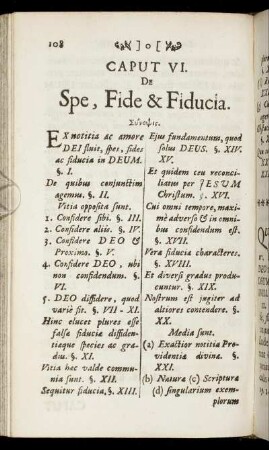 108 ] o [
CAPUT VI.
DE
Spe, Fide & Fiducia.
Συνοψις.
EX notitia ac amore
DEI fluit, spes, fides
ac fiducia in DEUM.
§. I.
De quibus conjunctim
agemus. §. II.
Vitia opposita sunt.
1. Confidere sibi. §. III.
2. Confidere aliis. §. IV.
3. Confidere DEO &
Proximo. §. V.
4. Confidere DEO, ubi
non confidendum. §.
VI.
5. DEO diffidere, quod
varie fit. §. VII - XI.
Hinc elucet plures esse
falsæ fiduciæ diffiden-
tiæque species ac gra-
dus. §. XI.
Vitia hæc valde commu-
nia sunt. §. XII.
Sequitur fiducia, §. XIII.
Ejus fundamentum, quod
solus DEUS. §. XIV.
XV.
Et quidem ceu reconci-
liatus per JESUM
Christum. §. XVI.
Cui omni tempore, maxi-
mè adverso & in omni-
bus confidendum est.
§. XVII.
Vera fiducia characteres.
§. XVIII.
Et diversi gradus produ-
cuntur. §. XIX.
Nostrum est jugiter ad
altiores contendere. §.
XX.
Media sunt.
(a) Exactior notitia Pro-
videntiæ divinæ. §.
XXI.
(b) Naturæ (c) Scripturæ
(d) singularium exem-
plorum